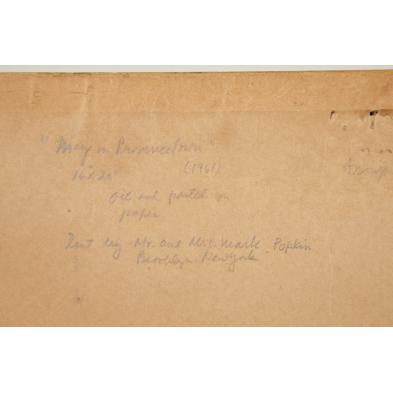 in Provincetown"
(1961)
16 x 20
oil and pastel on
paper
Lent by Mr. and Mrs. Mark Popkin
Brooklyn, New York